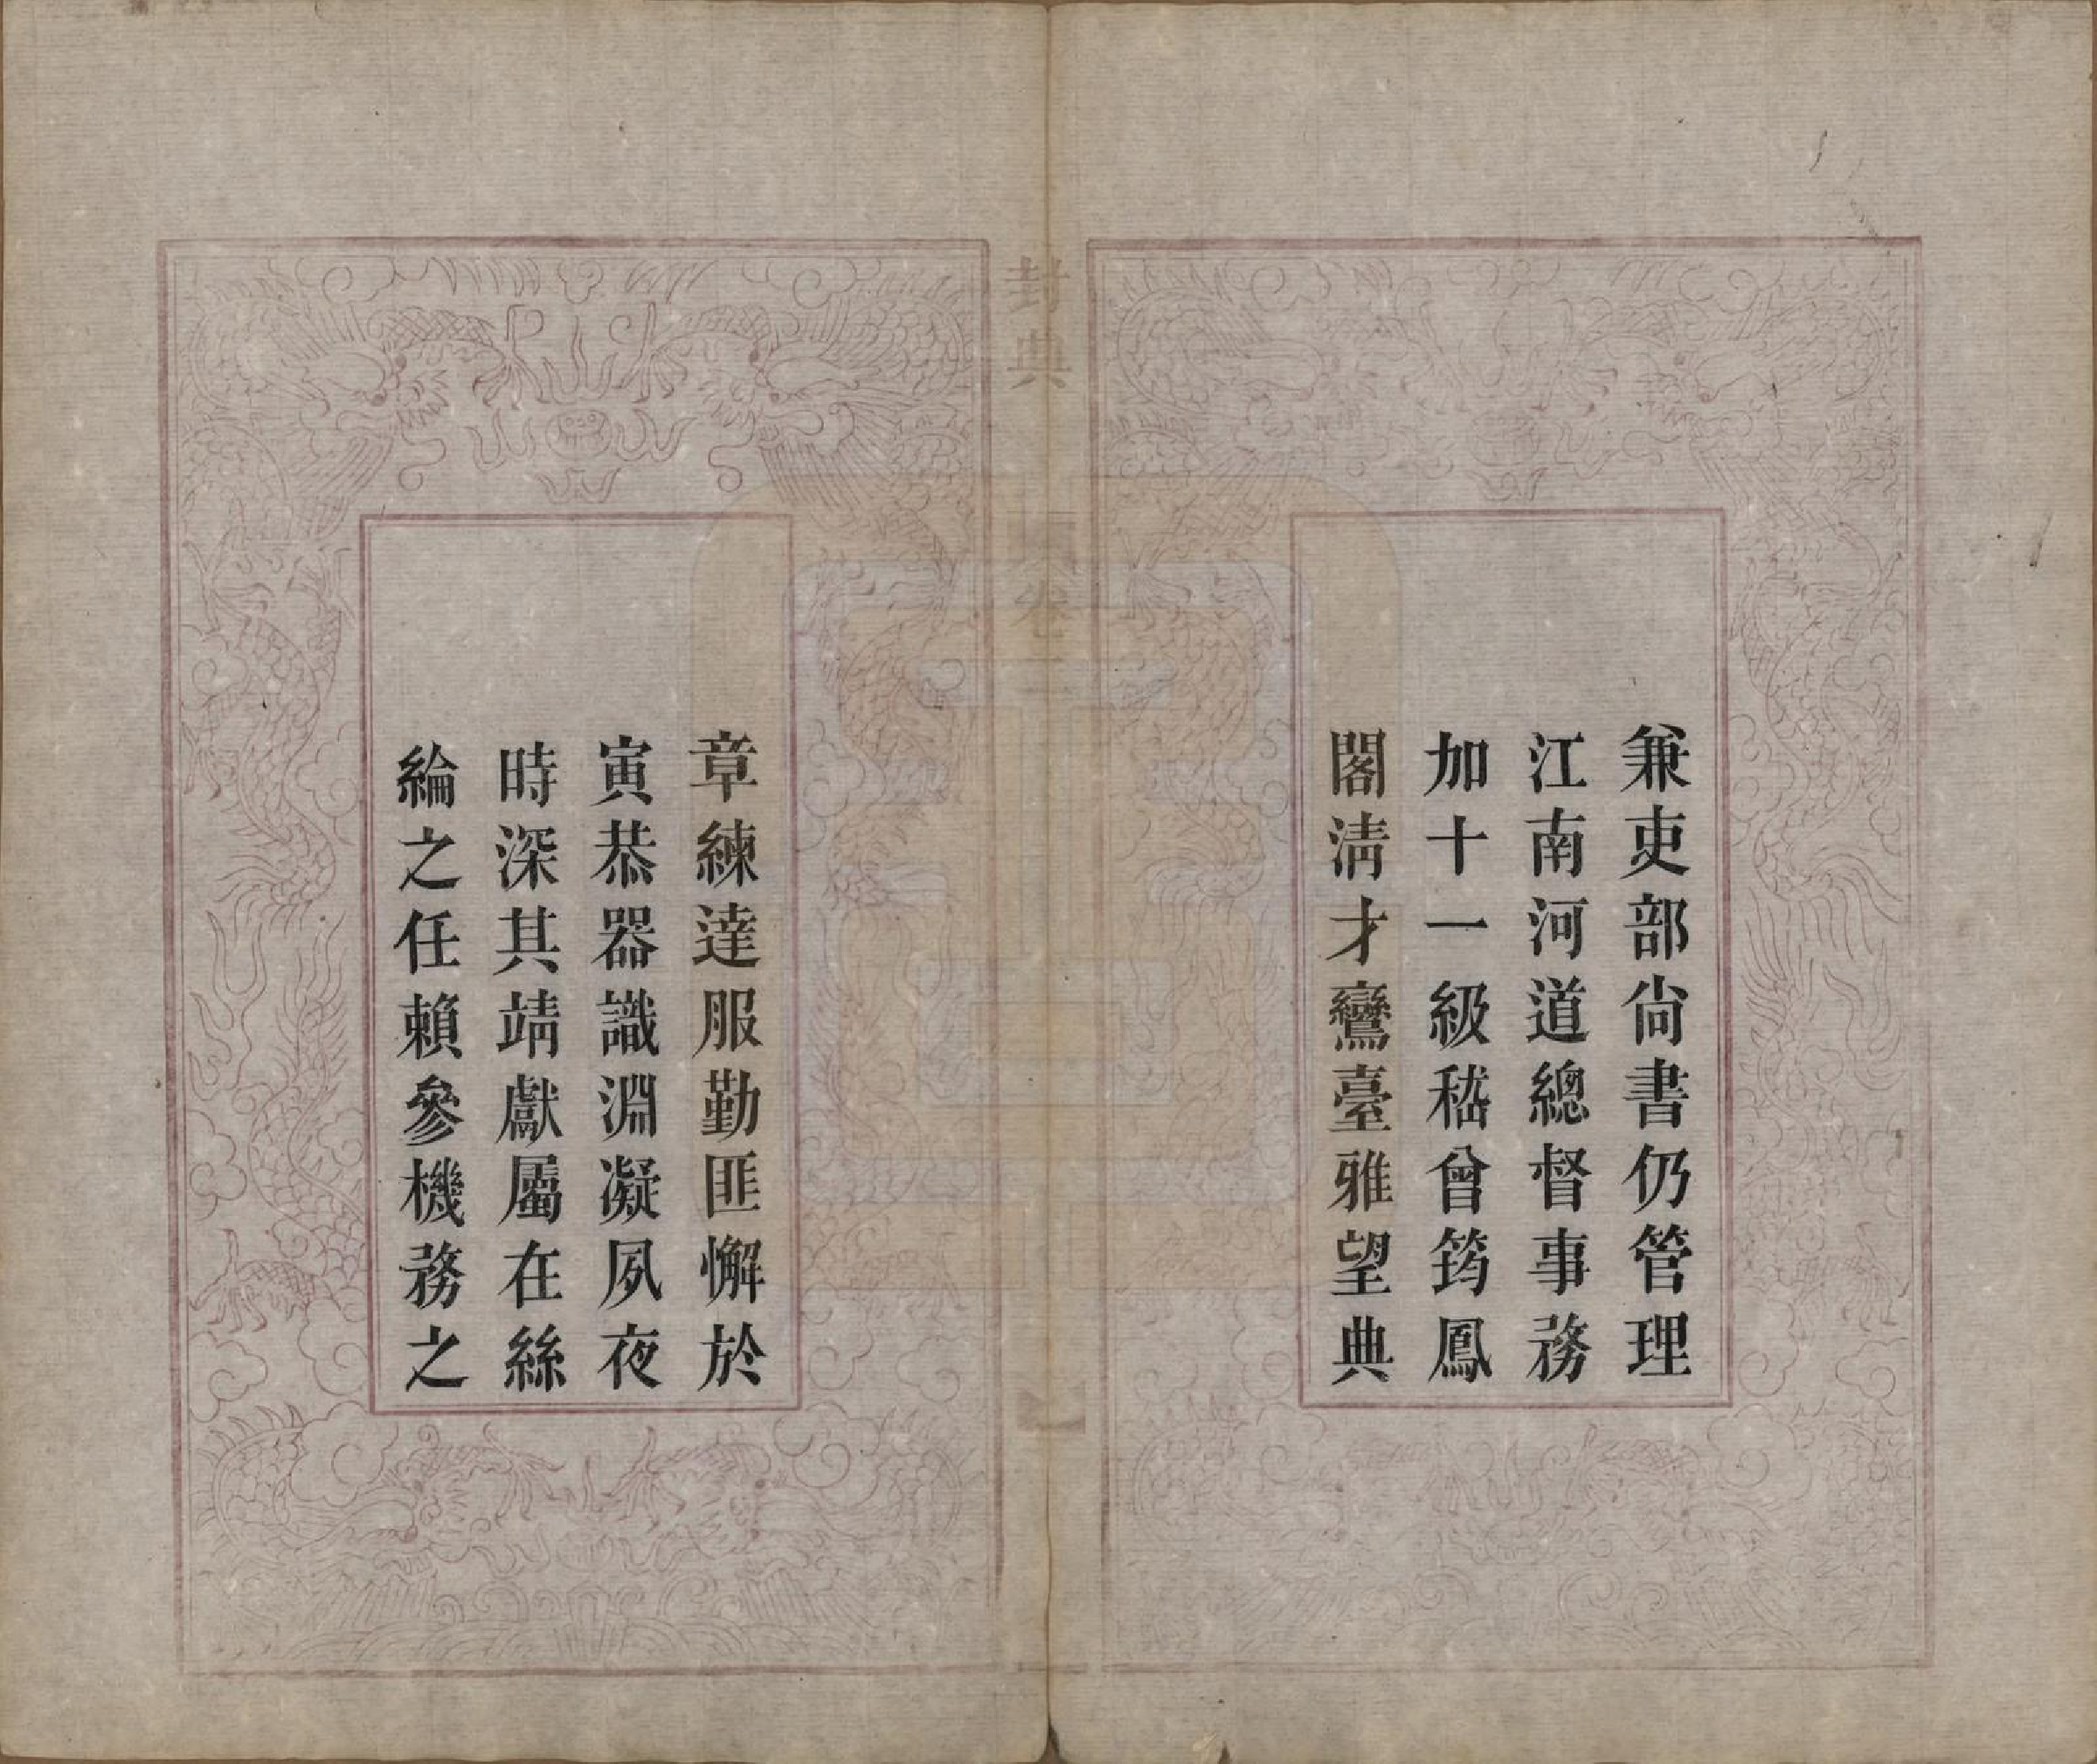 兼吏部尙書仍管理
江南河道總督事務
加十一級嵇曾筠鳳
閣淸才鸞臺雅望典
封典
卷一
一
章練達服勤匪懈於
寅恭器識淵凝夙夜
時深其靖獻屬在絲
綸之任賴參機務之